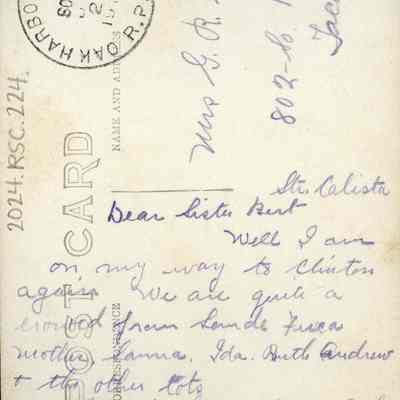 OAK HARBO
R.P.
2024.RSC.224.
POST CARD
NAME AND ADDRESS
CORRESPONDENCE
Mrs G. R.
802-So
Tac
Str. Calista
Dear Sister Bert
Well I am
on my way to Clinton
again We are quite a
crowd from
mother Ida. Ruth Andrew
+ the other tots